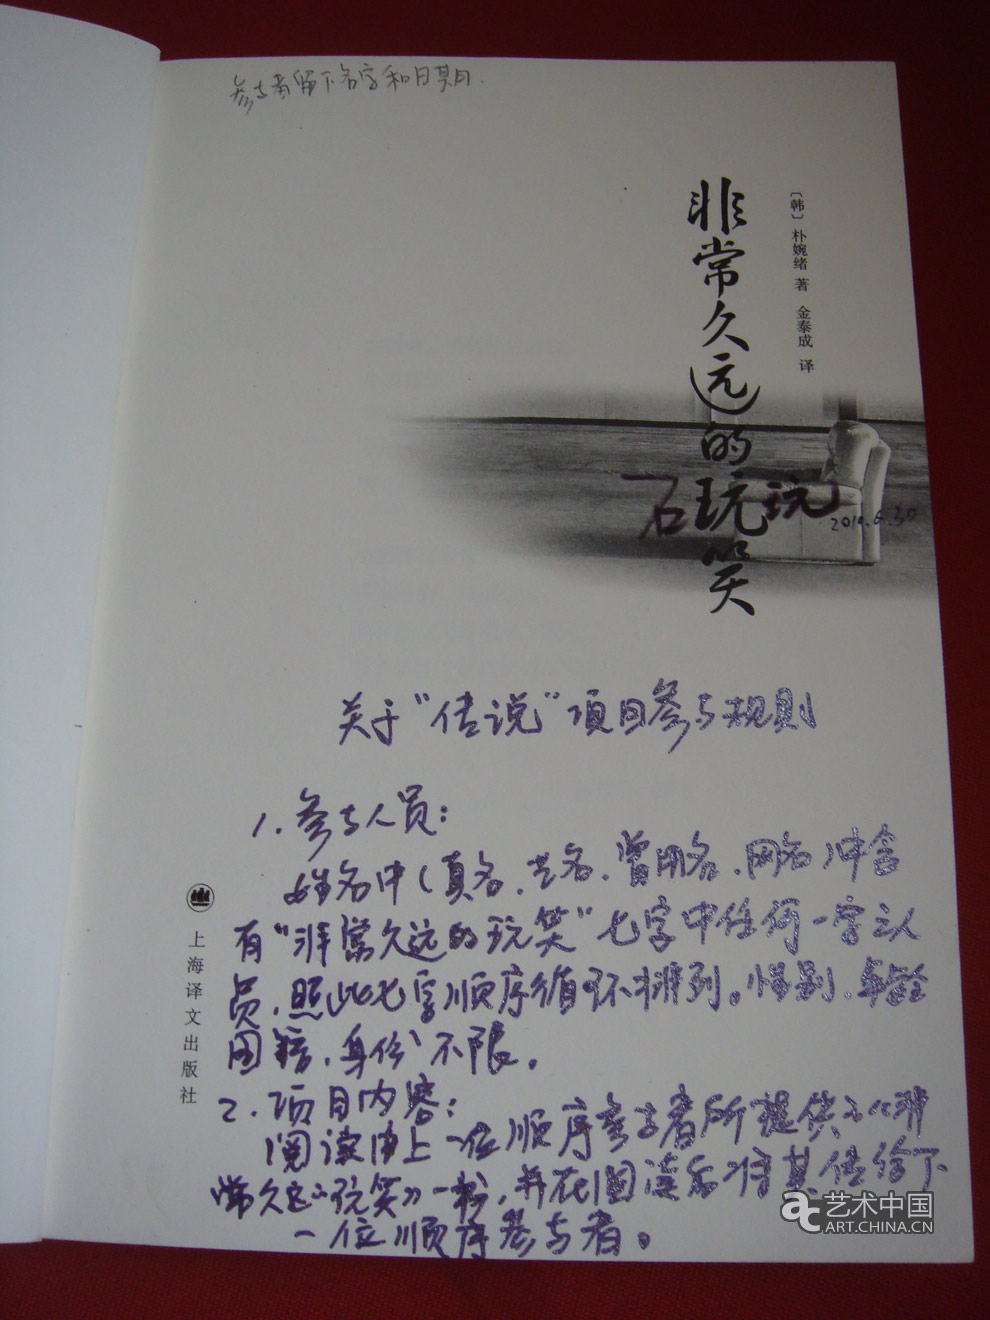 参与者留下名字和日期.
非常久远的玩笑
〔韩〕朴婉绪 著 金泰成 译
石玩玩
2010.6.30
关于“传说”项目参与规则
1.参与人员:
姓名中(真名、艺名、曾用名、网名)中含
有“非常久远的玩笑”七字中任何一字之人
员,照此七字顺序循环排列。性别、年龄
国籍、身份不限。
2.项目内容:
阅读由上一位顺序参与者所提供之《非
常久远的玩笑》一书,并在阅读后将其传给下
一位顺序参与者。
上海译文出版社
ac 艺术中国
ART.CHINA.CN